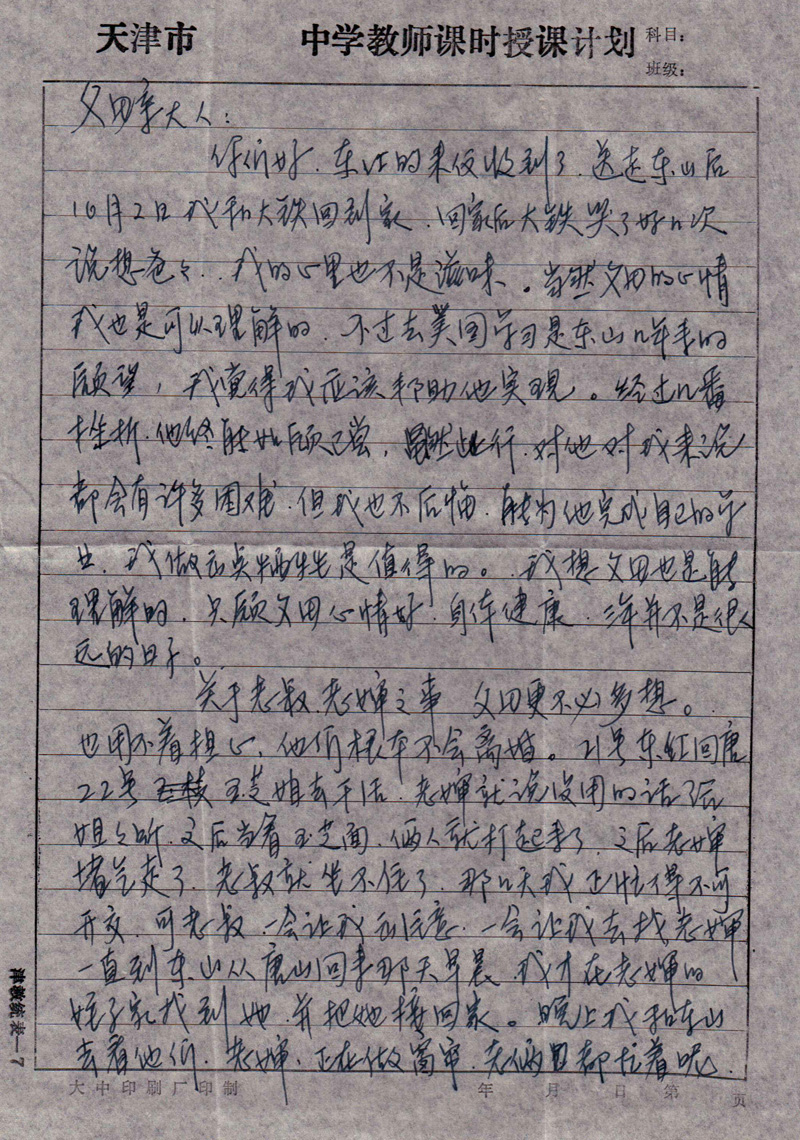 天津市 中学教师课时授课计划 科目：
班级：
父母亲大人：
你们好．东江的来信收到了．送走东山后
10月2日我和大铁回到家．回家后大铁哭了好几次
说想爸々．．我的心里也不是滋味。当然父母的心情
我也是可以理解的．不过去美国学习是东山几年来的
愿望，我觉得我应该帮助他实现。经过几番
挫折．他终能如愿已尝，虽然此行．对他对我来说
都会有许多困难．但我也不后悔．能为他完成自己的学
业．我做点牺牲是值得的。我想父母也是能
理解的．只愿父母心情好．身体健康．三年并不是很
远的日子。
关于老叔．老婶之事 父母更不必多想。
也用不着担心．他们根本不会离婚。21号东红回唐
22号 玉芝姐去干活．老婶就说没用的话了
姐々听．之后当着玉芝面．俩人就打起来了．之后老婶
堵气走了．老叔就坐不住了．那几天我正忙得不可
开交．可老叔一会让我 主意．一会让我去找老婶
一直到东山从唐山回来那天早晨．我才在老婶的
侄子家找到她．并把她接回家。晚上我和东山
去看他们．老婶．正在做窗帘．老俩口都忙着呢．
津教统表—7
大中印刷厂印制 年 月 日 第 页